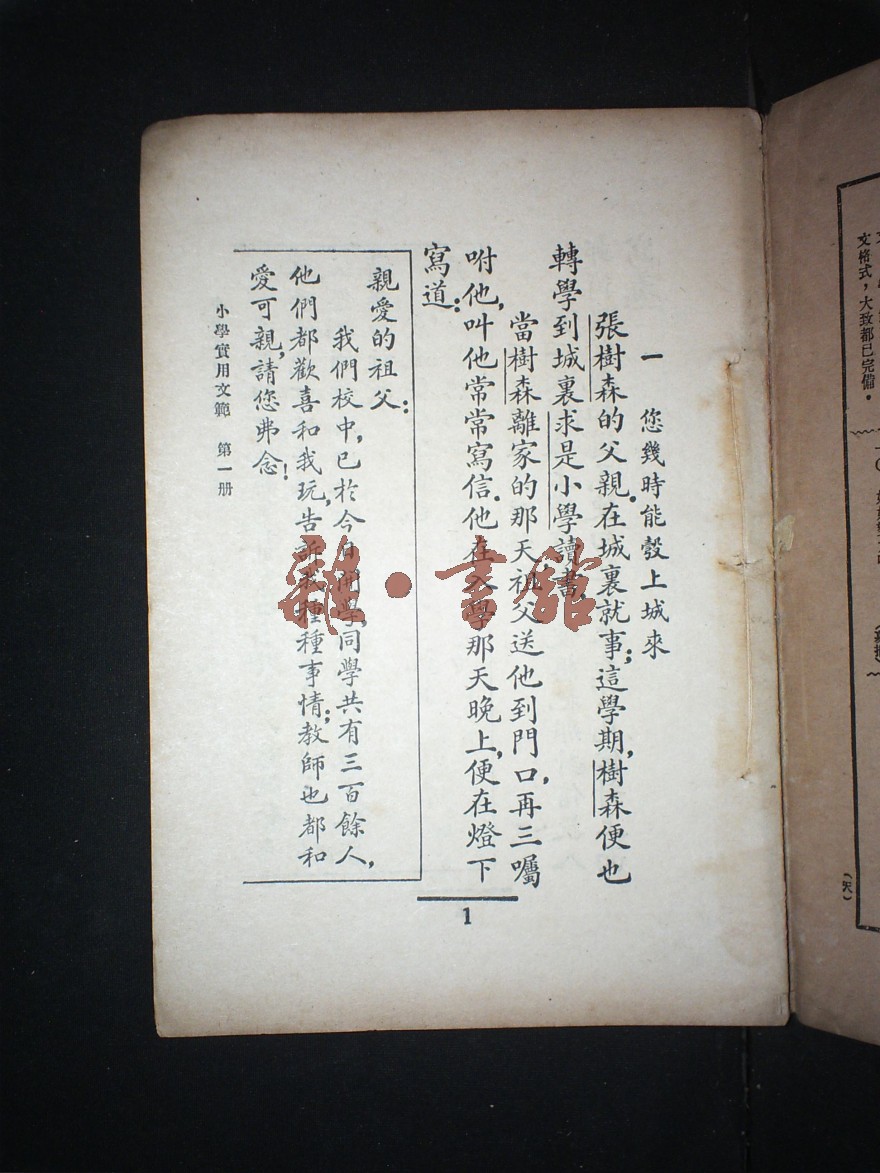 一 您幾時能彀上城來
張樹森的父親，在城裏就事；這學期，樹森便也
轉學到城裏求是小學讀書。
當樹森離家的那天，祖父送他到門口，再三囑
咐他，叫他常常寫信。他在入學那天晚上，便在燈下
寫道：
親愛的祖父：
我們校中，已於今日開學，同學共有三百餘人，
他們都歡喜和我玩，告訴我種種事情；教師也都和
愛可親，請您弗念！
小學實用文範 第一册
1
文格式，大致都已完備。
雜·書館